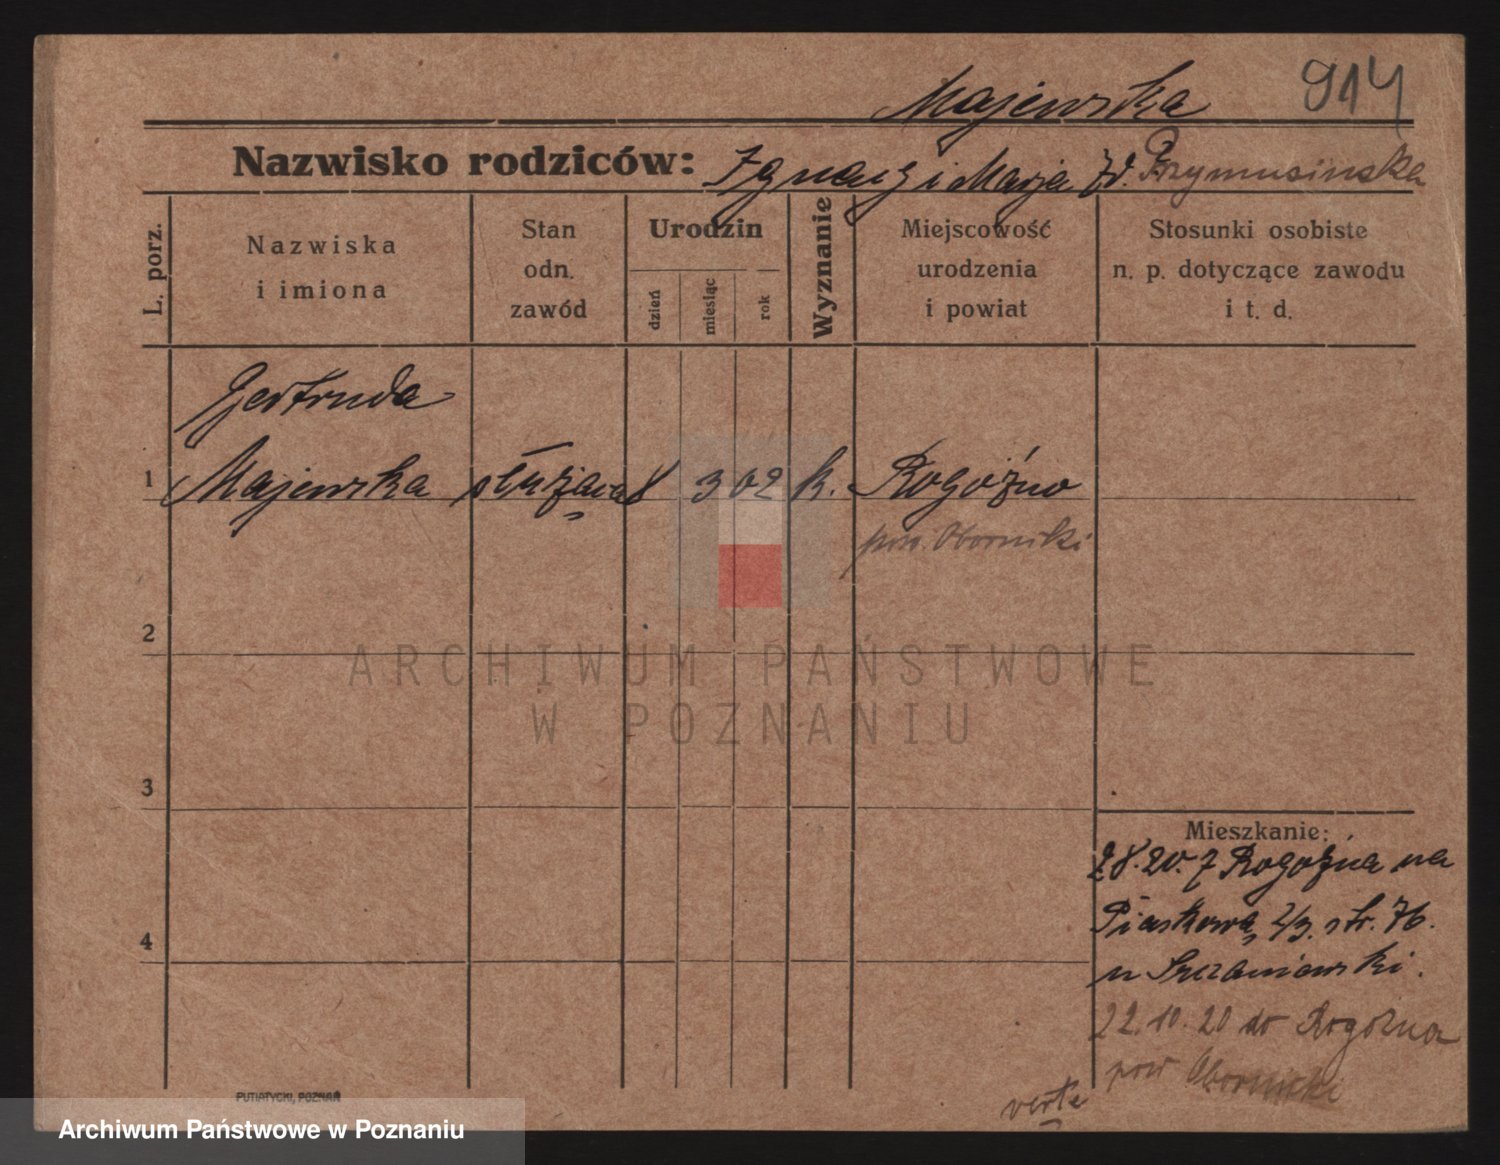 Majewska 914
Nazwisko rodziców: Ignacy i Marja zd. Przymusinska
L. porz.
Nazwiska
i imiona
Stan
odn.
zawód
Urodzin
dzień
miesiąc
rok
Wyznanie
Miejscowość
urodzenia
i powiat
Stosunki osobiste
n. p. dotyczące zawodu
i t. d.
Gertruda
1 Majewska służąca 8 3 02 k. Rogoźno
pow. Oborniki
2
ARCHIWUM PAŃSTWOWE
W POZNANIU
3
Mieszkanie:
8. 20. z Rogoźna na
Piaskowa 2/3. str. 76.
u
4
22. 10. 20 do Rogoźna
pow Obornicki
verte
PUTIATYCKI, POZNAŃ
Archiwum Państwowe w Poznaniu